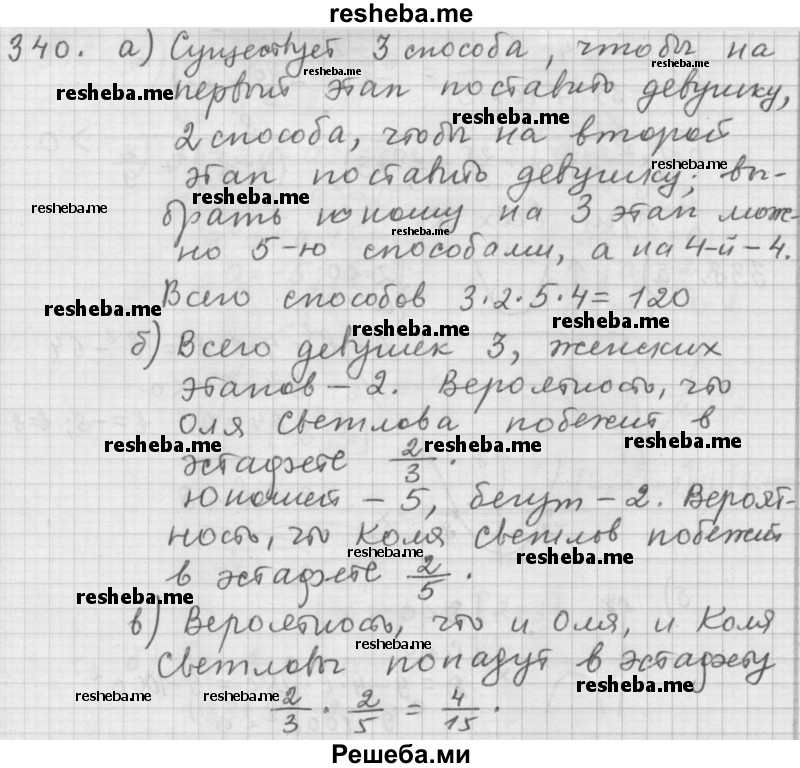 resheba.me
340. а) Существует 3 способа, чтобы на
resheba.me resheba.me
resheba.me первый этап поставить девушку,
resheba.me
2 способа, чтобы на второй
resheba.me
этап поставить девушку; вы-
resheba.me resheba.me
брать юношу на 3 этап мож-
resheba.me
но 5-ю способами, а на 4-й – 4.
Всего способов 3·2·5·4 = 120
resheba.me resheba.me resheba.me
б) Всего девушек 3, женских
этапов – 2. Вероятность, что
Оля Светлова побежит в
resheba.me resheba.me resheba.me
эстафете 2/3.
Юношей – 5, бегут – 2. Вероят-
ность, что Коля Светлов побежит
resheba.me resheba.me
в эстафете 2/5.
resheba.me
в) Вероятность, что и Оля, и Коля
resheba.me
Светловы попадут в эстафету
resheba.me resheba.me resheba.me
2/3 · 2/5 = 4/15.
Решеба.ми